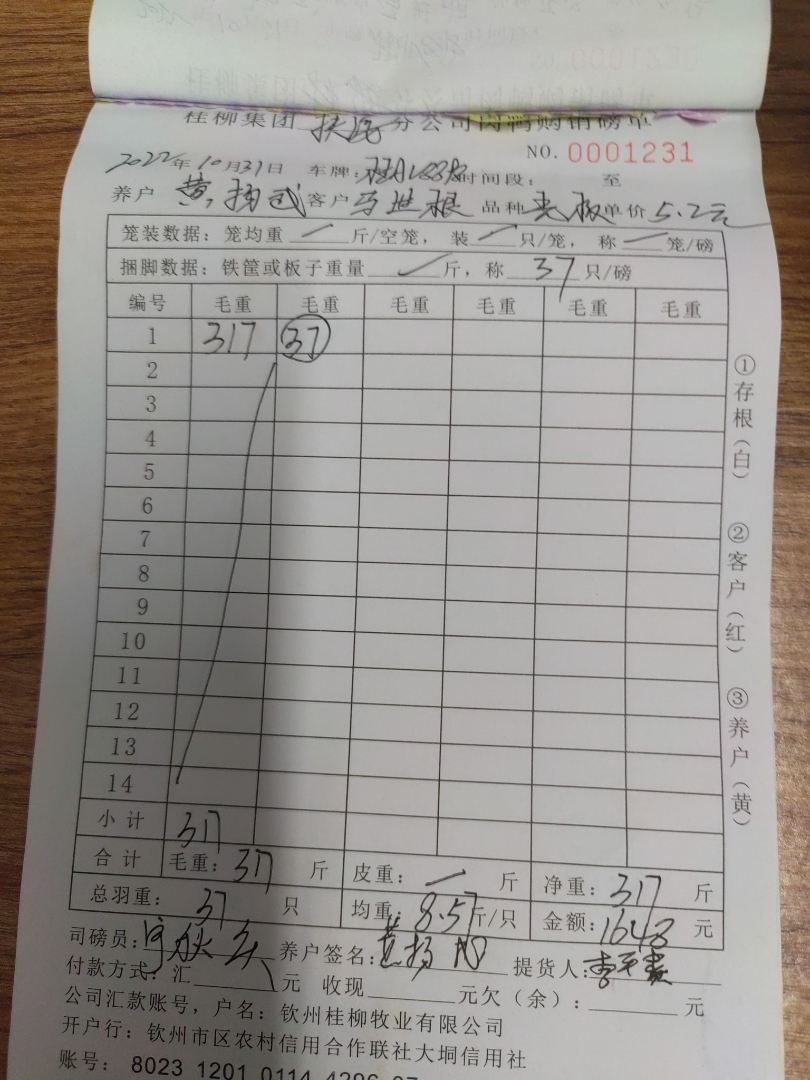 桂柳集团 分公司肉鸭购销磅单
NO. 0001231
2022年10月31日 车牌: 时间段: 至
养户 黄扬武 客户 马世根 品种 单价 5.2元
笼装数据: 笼均重 斤/空笼, 装 只/笼, 称 笼/磅
捆脚数据: 铁筐或板子重量 斤, 称 37 只/磅
编号 毛重 毛重 毛重 毛重 毛重 毛重
1 317 37
2
3
4
5
6
7
8
9
10
11
12
13
14
小计 317
合计 毛重: 317 斤 皮重: 一 斤 净重: 317 斤
总羽重: 37 只 均重: 8.57 斤/只 金额: 1648 元
司磅员: 养户签名: 黄扬武 提货人:
付款方式: 汇 元 收现 元欠(余): 元
公司汇款账号, 户名: 钦州桂柳牧业有限公司
开户行: 钦州市区农村信用合作联社大垌信用社
账号: 8023 1201 0114 4296 07
①存根(白)
②客户(红)
③养户(黄)